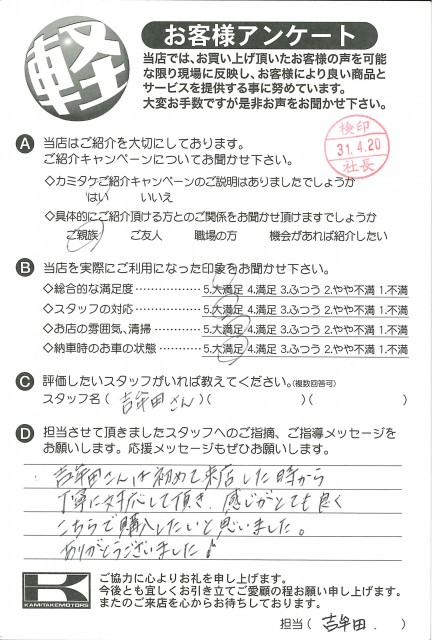 軽
お客様アンケート
当店では、お買い上げ頂いたお客様の声を可能
な限り現場に反映し、お客様により良い商品と
サービスを提供する事に努めています。
大変お手数ですが是非お声をお聞かせ下さい。
検印
31.4.20
社長
A 当店はご紹介を大切にしております。
ご紹介キャンペーンについてお聞かせ下さい。
◇カミタケご紹介キャンペーンのご説明はありましたでしょうか
はい いいえ
◇具体的にご紹介頂ける方とのご関係をお聞かせ頂けますでしょうか
ご親族 ご友人 職場の方 機会があれば紹介したい
B 当店を実際にご利用になった印象をお聞かせ下さい。
◇総合的な満足度 ・・・・・・・・・・・・ 5.大満足 4.満足 3.ふつう 2.やや不満 1.不満
◇スタッフの対応 ・・・・・・・・・・・・ 5.大満足 4.満足 3.ふつう 2.やや不満 1.不満
◇お店の雰囲気、清掃 ・・・・・・・・ 5.大満足 4.満足 3.ふつう 2.やや不満 1.不満
◇納車時のお車の状態 ・・・・・・・・ 5.大満足 4.満足 3.ふつう 2.やや不満 1.不満
C 評価したいスタッフがいれば教えてください。(複数回答可)
スタッフ名( 吉牟田さん )( )( )
D 担当させて頂きましたスタッフへのご指摘、ご指導メッセージを
お願いします。応援メッセージもぜひお願いします。
吉牟田さんは初めて来店した時から
丁寧に対応して頂き、感じがとても良く
こちらで購入したいと思いました。
ありがとうございました♪
K
KAMITAKEMOTORS
ご協力に心よりお礼を申し上げます。
今後とも宜しくお引き立てご愛顧の程お願い申し上げます。
またのご来店を心からお待ちしております。
担当( 吉牟田. )